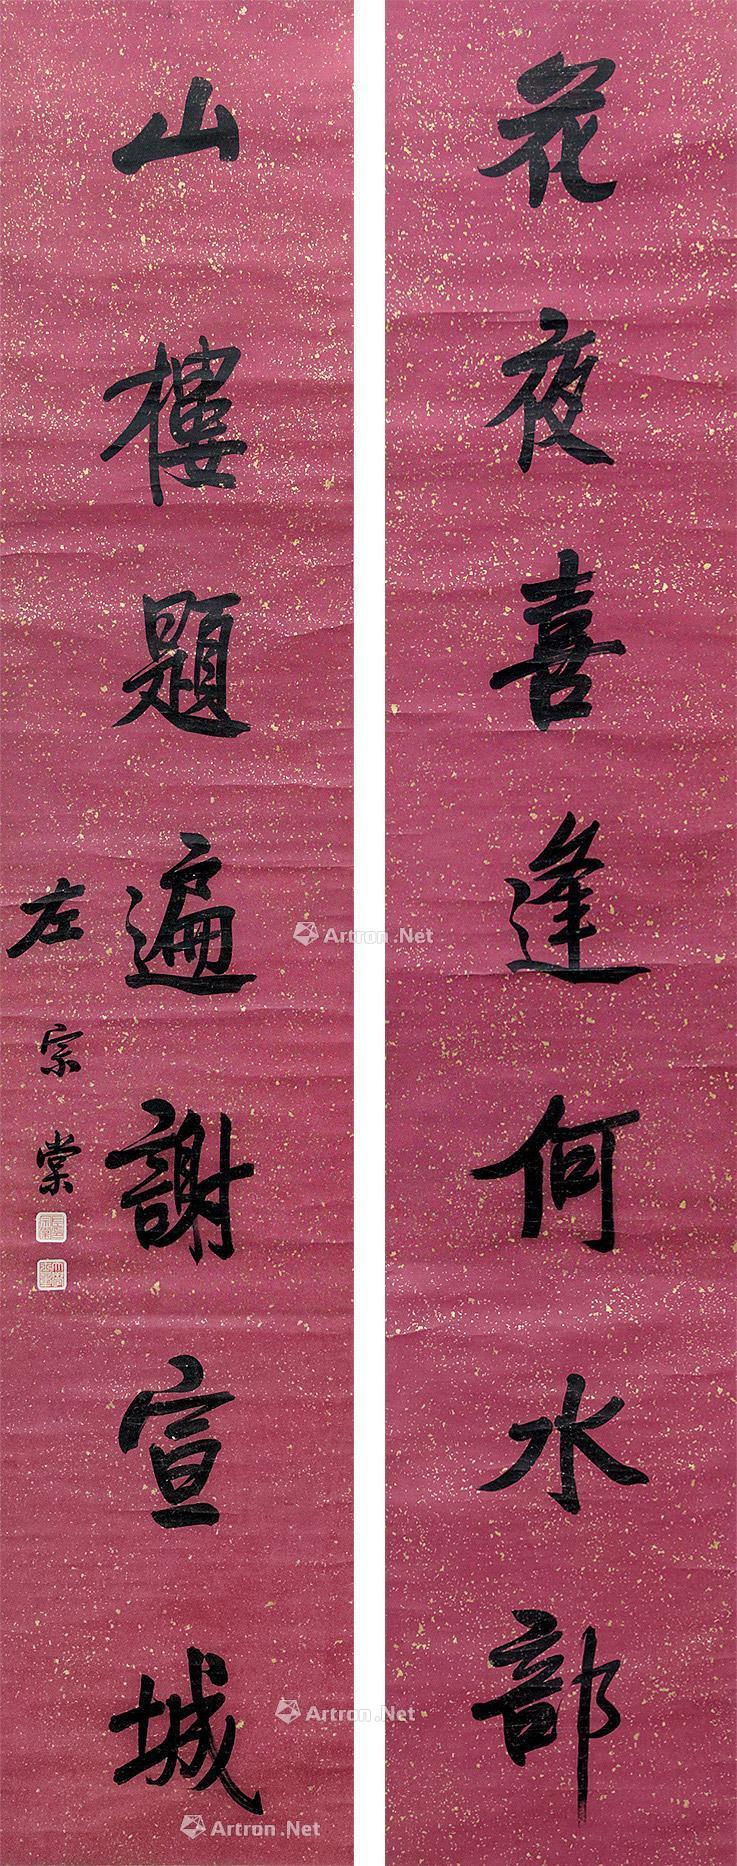 花夜喜逢何水部
山樓題遍謝宣城
左宗棠
Artron.Net
Artron.Net
Artron.Net